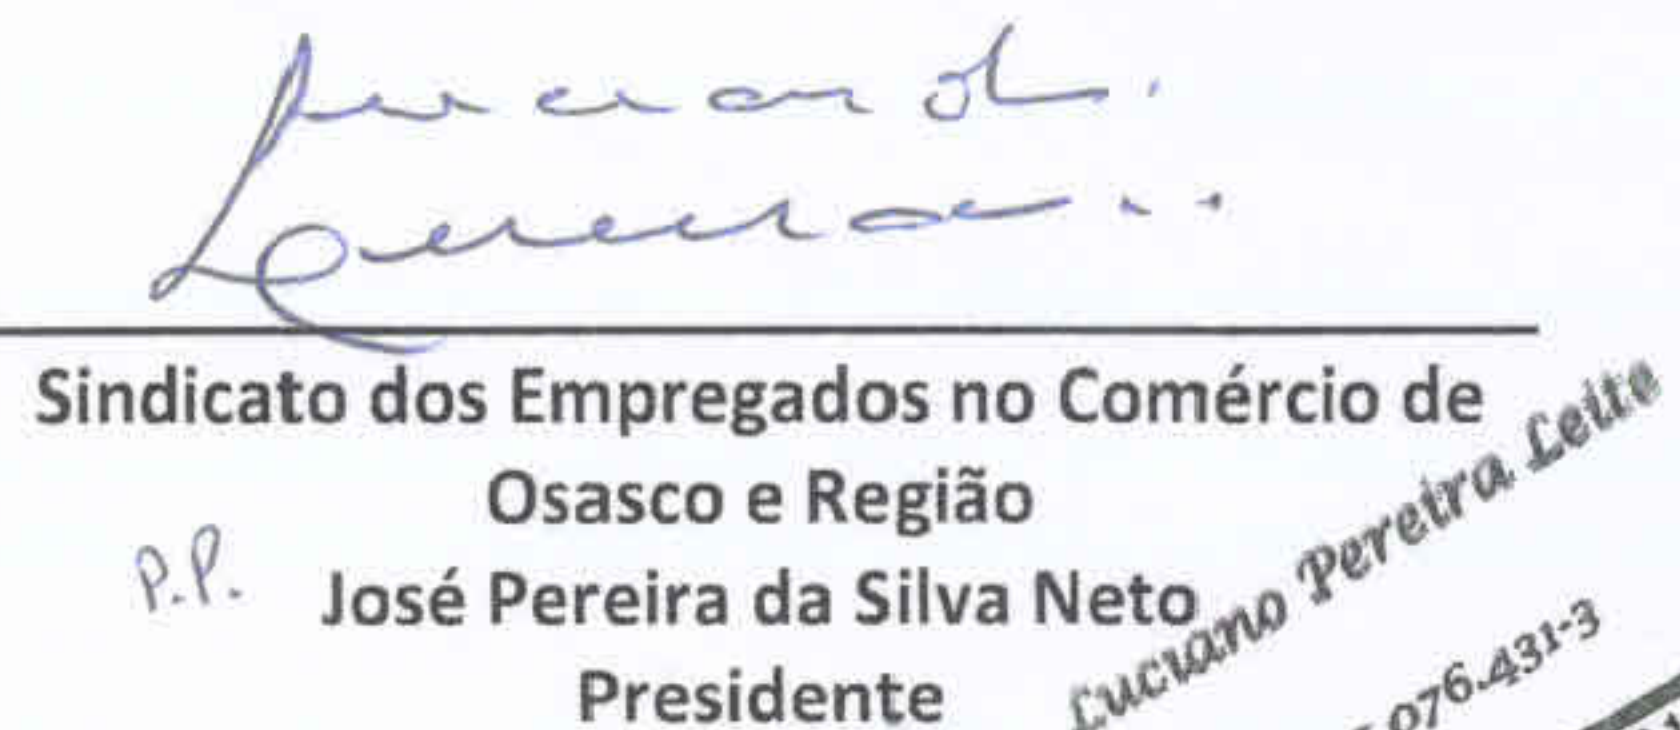 Sindicato dos Empregados no Comércio de
Osasco e Região
P.P. José Pereira da Silva Neto
Presidente
Luciano Pereira Leite
076.431-3